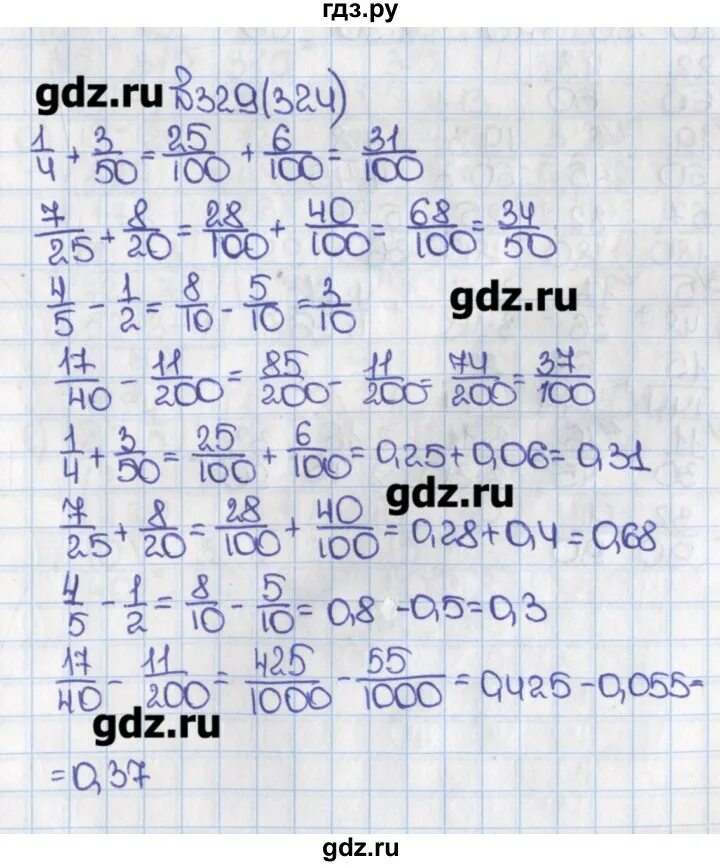 гдз.ру
gdz.ru №329(324)
1/4 + 3/50 = 25/100 + 6/100 = 31/100
7/25 + 8/20 = 28/100 + 40/100 = 68/100 = 34/50
4/5 - 1/2 = 8/10 - 5/10 = 3/10
gdz.ru
17/40 - 11/200 = 85/200 - 11/200 = 74/200 = 37/100
1/4 + 3/50 = 25/100 + 6/100 = 0,25 + 0,06 = 0,31
gdz.ru
7/25 + 8/20 = 28/100 + 40/100 = 0,28 + 0,4 = 0,68
4/5 - 1/2 = 8/10 - 5/10 = 0,8 - 0,5 = 0,3
17/40 - 11/200 = 425/1000 - 55/1000 = 0,425 - 0,055 =
gdz.ru
= 0,37
gdz.ru